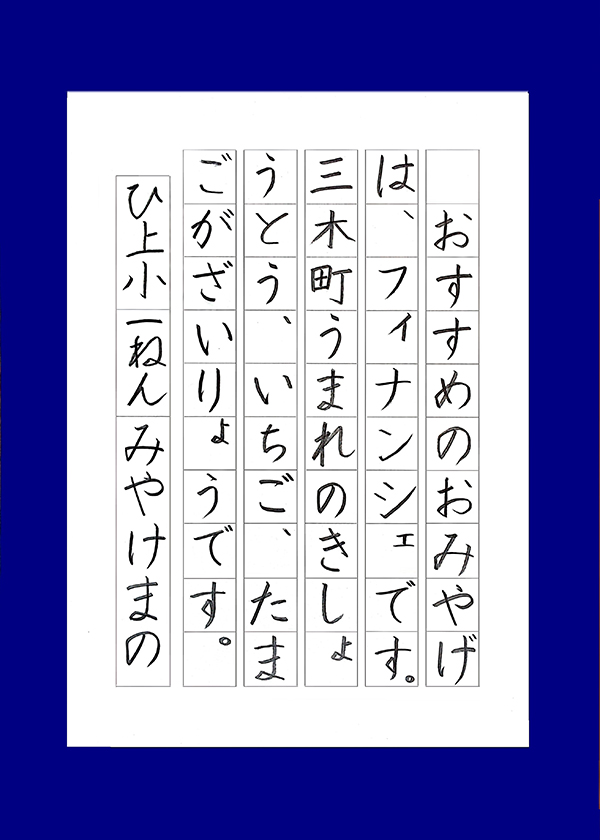 おすすめのおみやげ
は、フィナンシェです。
三木町うまれのきしょ
うとう、いちご、たま
ごがざいりょうです。
ひ上小一ねんみやけまの